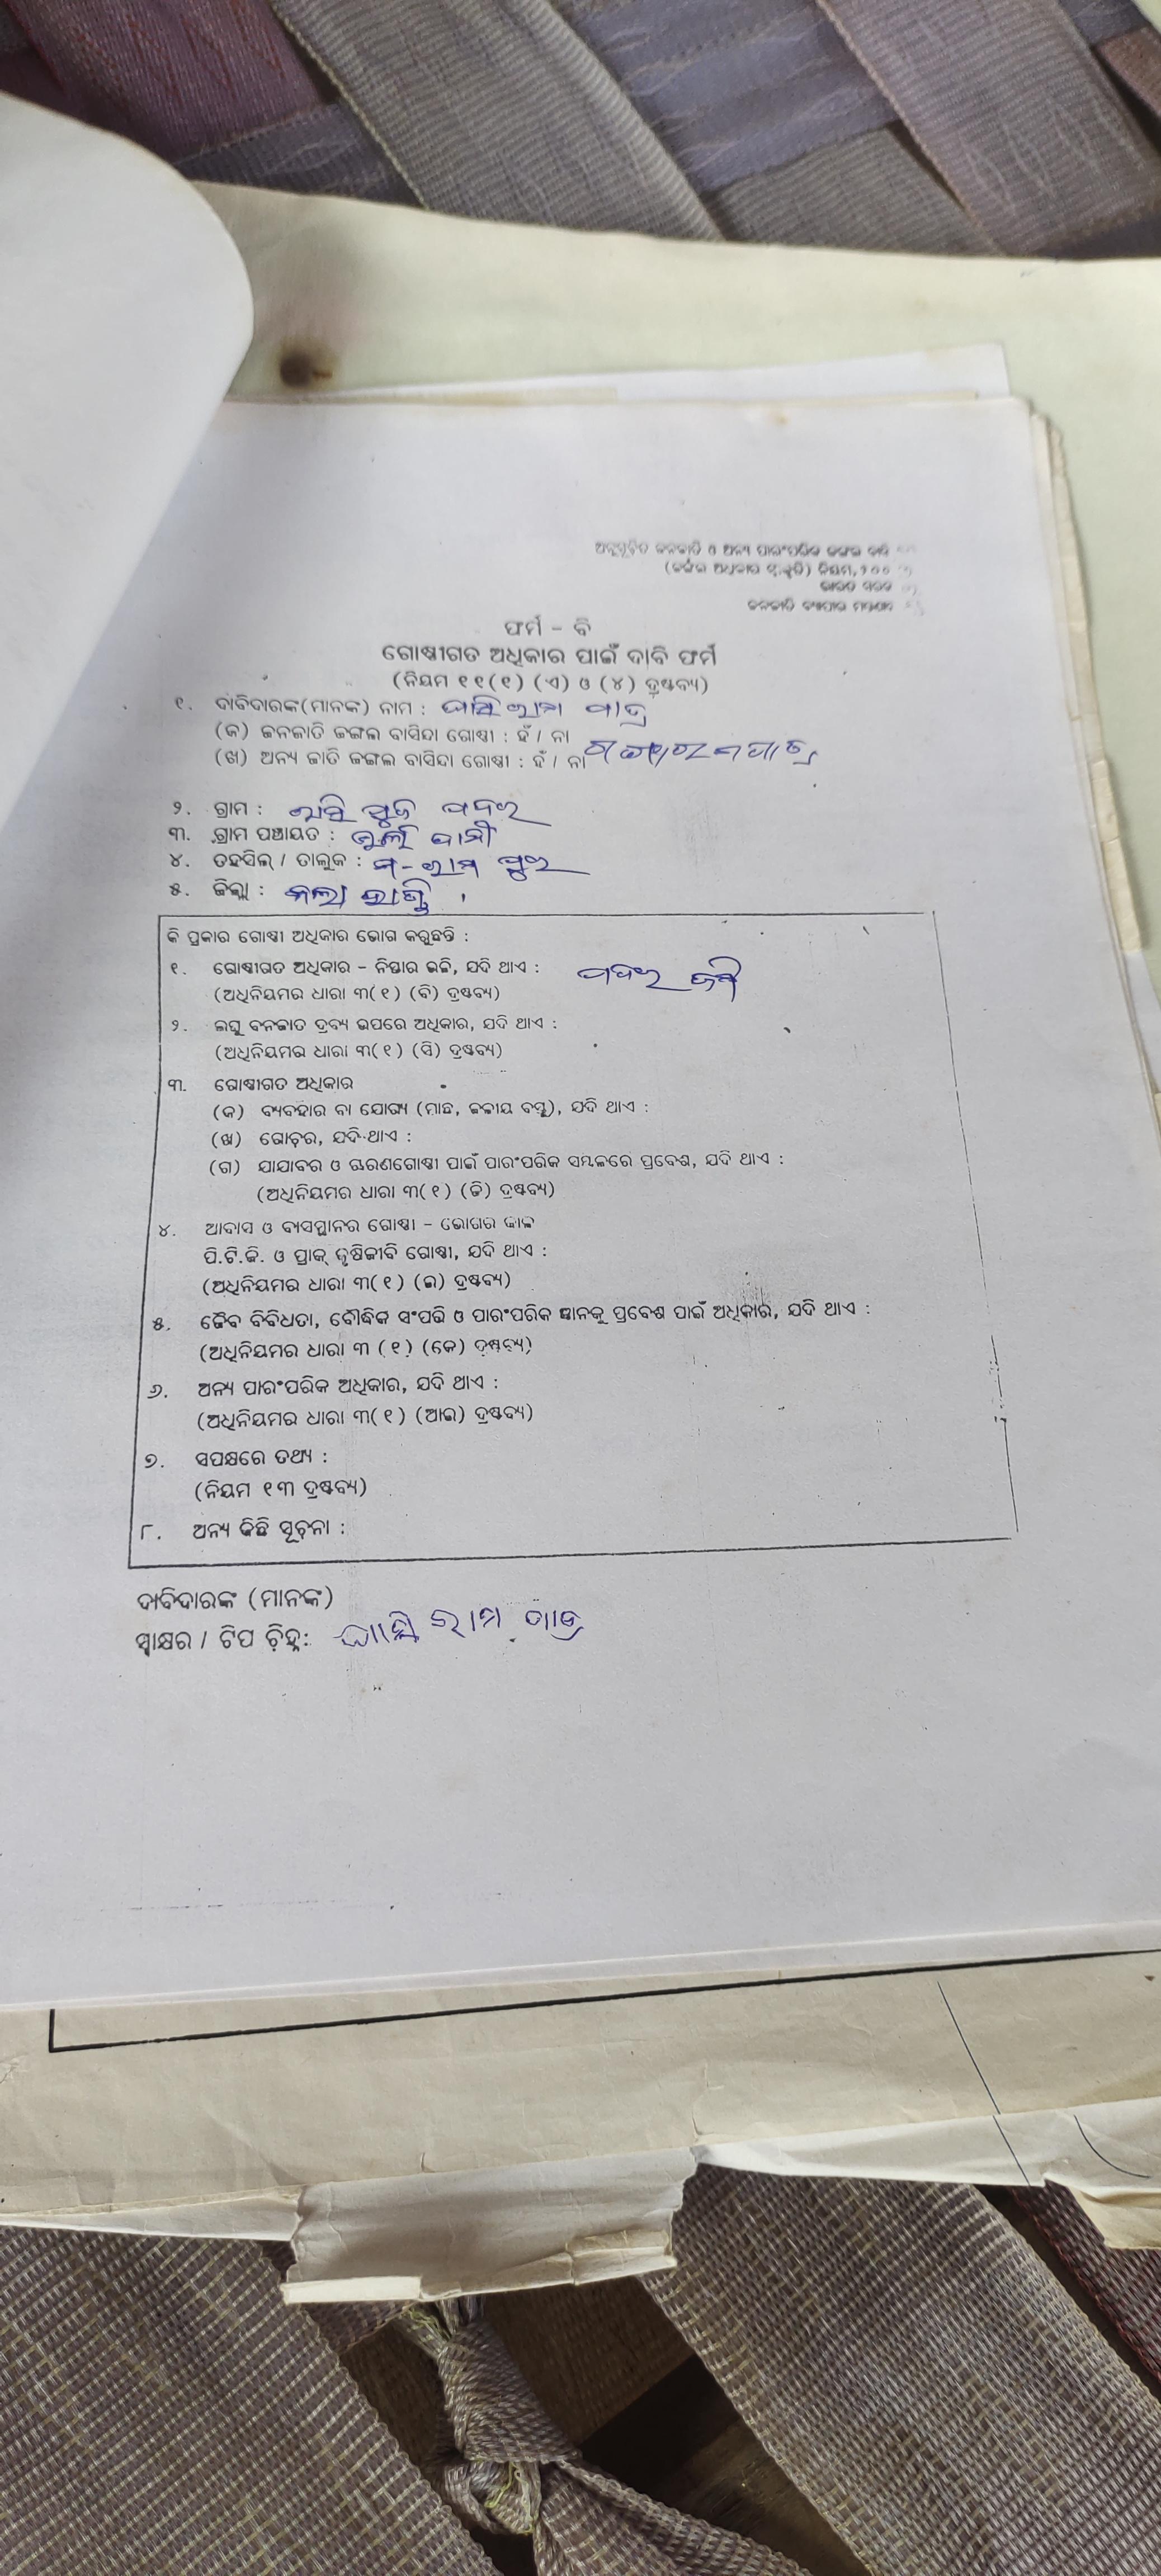 ଅନୁସୂଚିତ ଜନଜାତି ଓ ଅନ୍ୟ ପାରଂପରିକ ଜଙ୍ଗଲ
(ଜଙ୍ଗଲ ଅଧିକାର ସ୍ୱୀକୃତି) ନିୟମ, ୨୦୦
ଭାରତ
ଜନଜାତି ବ୍ୟାପାର
ଫର୍ମ - ବି
ଗୋଷ୍ଠୀଗତ ଅଧିକାର ପାଇଁ ଦାବି ଫର୍ମ
(ନିୟମ ୧୧(୧) (ଏ) ଓ (୪) ଦ୍ରଷ୍ଟବ୍ୟ)
୧. ଦାବିଦାରଙ୍କ(ମାନଙ୍କ) ନାମ : ରାମ ପାତ୍ର
(କ) ଜନଜାତି ଜଙ୍ଗଲ ବାସିନ୍ଦା ଗୋଷ୍ଠୀ : ହଁ / ନା
(ଖ) ଅନ୍ୟ ଜାତି ଜଙ୍ଗଲ ବାସିନ୍ଦା ଗୋଷ୍ଠୀ : ହଁ / ନା
୨. ଗ୍ରାମ : ପଦର
୩. ଗ୍ରାମ ପଞ୍ଚାୟତ :
୪. ତହସିଲ୍ / ତାଲୁକ : ମ-ରାମ ପୁର
୫. ଜିଲ୍ଲା : କଳା ହାଣ୍ଡି
କି ପ୍ରକାର ଗୋଷ୍ଠୀ ଅଧିକାର ଭୋଗ କରୁଛନ୍ତି :
୧. ଗୋଷ୍ଠୀଗତ ଅଧିକାର - ନିସ୍ତାର ଭଳି, ଯଦି ଥାଏ : ପଦର ଜମି
(ଅଧିନିୟମର ଧାରା ୩(୧) (ବି) ଦ୍ରଷ୍ଟବ୍ୟ)
୨. ଲଘୁ ବନଜାତ ଦ୍ରବ୍ୟ ଉପରେ ଅଧିକାର, ଯଦି ଥାଏ :
(ଅଧିନିୟମର ଧାରା ୩(୧) (ସି) ଦ୍ରଷ୍ଟବ୍ୟ)
୩. ଗୋଷ୍ଠୀଗତ ଅଧିକାର
(କ) ବ୍ୟବହାର ବା ଯୋଗ୍ୟ (ମାଛ, ଜଳୀୟ ବସ୍ତୁ), ଯଦି ଥାଏ :
(ଖ) ଗୋଚର, ଯଦି ଥାଏ :
(ଗ) ଯାଯାବର ଓ ଚାରଣଗୋଷ୍ଠୀ ପାଇଁ ପାରଂପରିକ ସମ୍ବଳରେ ପ୍ରବେଶ, ଯଦି ଥାଏ :
(ଅଧିନିୟମର ଧାରା ୩(୧) (ଡି) ଦ୍ରଷ୍ଟବ୍ୟ)
୪. ଆବାସ ଓ ବାସସ୍ଥାନର ଗୋଷ୍ଠୀ - ଭୋଗର କାଳ
ପି.ଟି.ଜି. ଓ ପ୍ରାକ୍ କୃଷିଜୀବି ଗୋଷ୍ଠୀ, ଯଦି ଥାଏ :
(ଅଧିନିୟମର ଧାରା ୩(୧) (ଇ) ଦ୍ରଷ୍ଟବ୍ୟ)
୫. ଜୈବ ବିବିଧତା, ବୌଦ୍ଧିକ ସଂପତ୍ତି ଓ ପାରଂପରିକ ଜ୍ଞାନକୁ ପ୍ରବେଶ ପାଇଁ ଅଧିକାର, ଯଦି ଥାଏ :
(ଅଧିନିୟମର ଧାରା ୩ (୧) (କେ) ଦ୍ରଷ୍ଟବ୍ୟ)
୬. ଅନ୍ୟ ପାରଂପରିକ ଅଧିକାର, ଯଦି ଥାଏ :
(ଅଧିନିୟମର ଧାରା ୩(୧) (ଆଇ) ଦ୍ରଷ୍ଟବ୍ୟ)
୭. ସପକ୍ଷରେ ତଥ୍ୟ :
(ନିୟମ ୧୩ ଦ୍ରଷ୍ଟବ୍ୟ)
୮. ଅନ୍ୟ କିଛି ସୂଚନା :
ଦାବିଦାରଙ୍କ (ମାନଙ୍କ)
ସ୍ୱାକ୍ଷର / ଟିପ ଚିହ୍ନ: ରାମ ପାତ୍ର